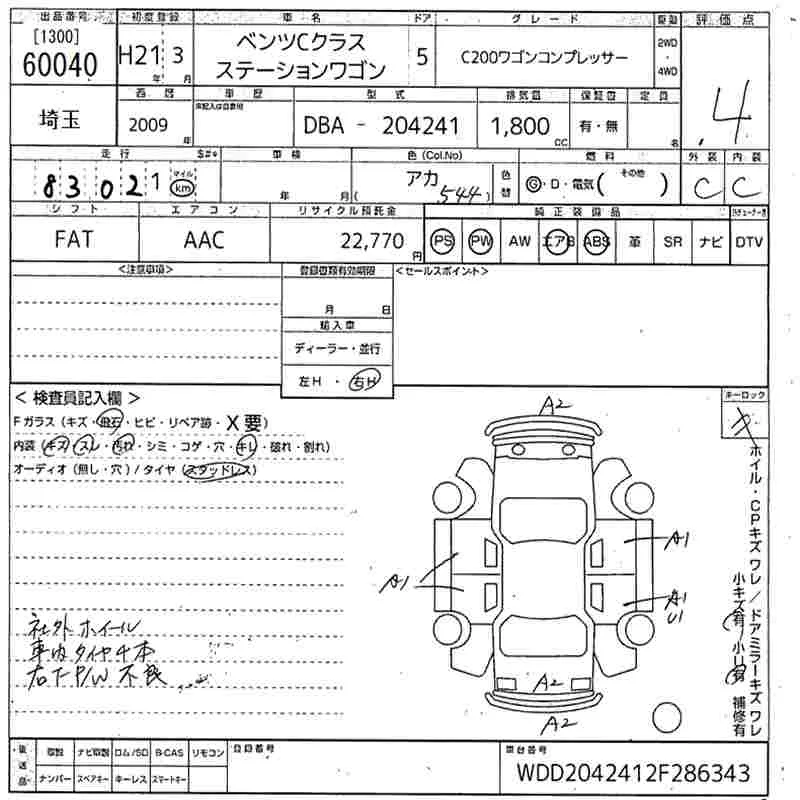 出品番号 初度登録 車名 ドア グレード 駆動 評価点
[1300]
60040 H21年 3月 ベンツCクラス 5 C200ワゴンコンプレッサー 2WD・4WD 4
ステーションワゴン
埼玉 西暦 車歴 型式 排気量 保証書 定員
未記入は自家用
2009年 DBA - 204241 1,800cc 有・無 名
走行 S#* 車検 色(Col.No) 燃料 外装 内装
83021 マイル km 年 月 アカ (544) 色替 G・D・電気( その他 ) C C
シフト エアコン リサイクル預託金 純正装備品
FAT AAC 22,770円 PS PW AW エアB ABS 革 SR ナビ DTV
<注意事項> 登録書類有効期限 <セールスポイント>
月 日
輸入車
ディーラー・並行
左H・右H
<検査員記入欄> キーロック
Fガラス(キズ・飛石・ヒビ・リペア跡・X要)
内装(キズ・スレ・汚れ・シミ・コゲ・穴・キレ・破れ・割れ)
オーディオ(無し・穴)/タイヤ(スタッドレス)
A2
A1
A1
A1
U1
A2
A2
ホイル・CPキズワレ/ドアミラーキズワレ
小キズ有/小U有 補修有
社外ホイール
車内タイヤ4本
右下P/W不良
後送品 取説 ナビ取説 ロム/SD B-CAS リモコン 登録番号 車台番号
ナンバー スペアキー キーレス スマートキー WDD2042412F286343